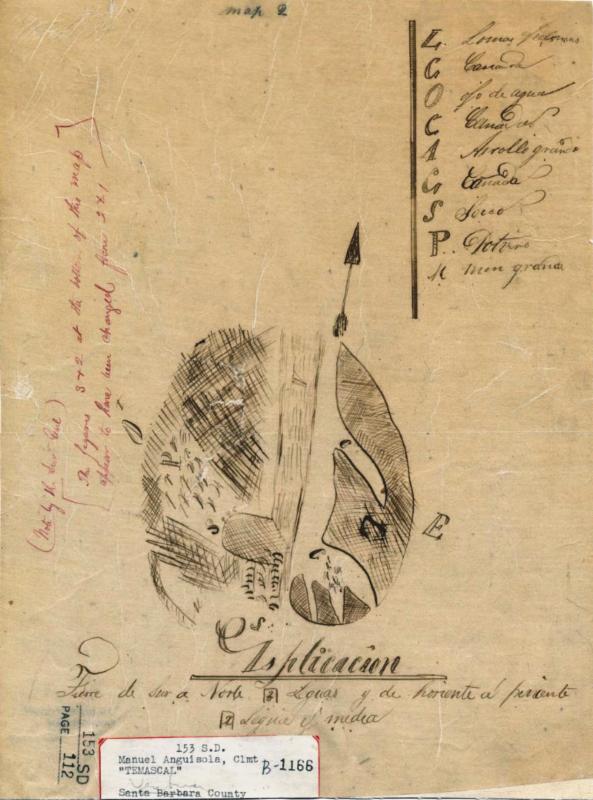 map 2
L. Lomas
C Cañada
O ojo de agua
C Cañada
A Arrollo grande
C Cañada
S Seco
P. Potrero
M mon grande
The figures 3 & 2 at the bottom of the map
appear to have been changed from 2 & 1
(Note by
O
P
S
C
C
E
S
Isplicacion
Tiene de Sur a Norte 3 Leguas y de horiente a poniente
2 Legua y media
153 SD
PAGE 112
153 S.D.
Manuel Anguisola, Clmt
"TEMASCAL"
B-1166
Ventura
Santa Barbara County